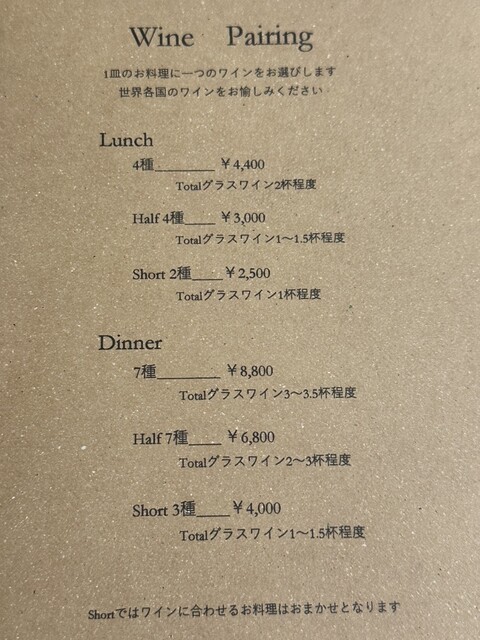 Wine Pairing
1皿のお料理に一つのワインをお選びします
世界各国のワインをお愉しみください
Lunch
4種________ ￥4,400
Totalグラスワイン2杯程度
Half 4種____ ￥3,000
Totalグラスワイン1〜1.5杯程度
Short 2種____￥2,500
Totalグラスワイン1杯程度
Dinner
7種________ ￥8,800
Totalグラスワイン3〜3.5杯程度
Half 7種____ ￥6,800
Totalグラスワイン2〜3杯程度
Short 3種____￥4,000
Totalグラスワイン1〜1.5杯程度
Shortではワインに合わせるお料理はおまかせとなります